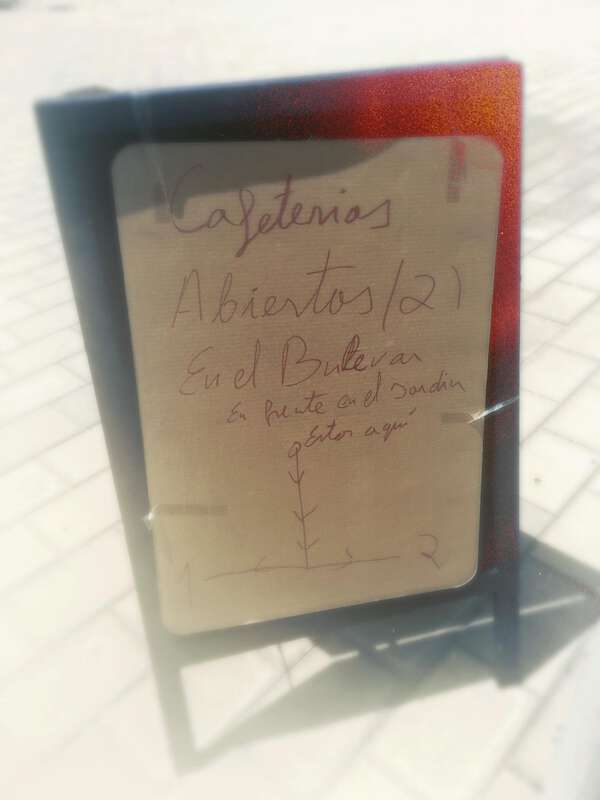 Cafeterias
Abiertos (2)
En el Bulevar
En frente en el Jardin
Estos aquí
1 2